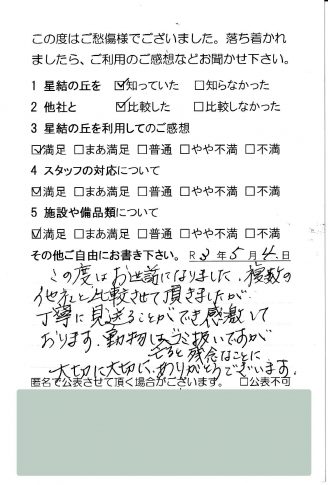 この度はご愁傷様でございました。落ち着かれ
ましたら、ご利用のご感想などお聞かせ下さい。
1 星結の丘を ☑知っていた □知らなかった
2 他社と ☑比較した □比較しなかった
3 星結の丘を利用してのご感想
☑満足 □まあ満足 □普通 □やや不満 □不満
4 スタッフの対応について
☑満足 □まあ満足 □普通 □やや不満 □不満
5 施設や備品類について
☑満足 □まあ満足 □普通 □やや不満 □不満
その他ご自由にお書き下さい。 R3年5月4日
この度はお世話になりました、複数の
他社と比較させて頂きましたが
丁寧に見送ることができ感激して
おります。動物はゴミ扱いですが
残念なことに
大切に大切に、ありがとうございます。
匿名で公表させて頂く場合がございます。 □公表不可